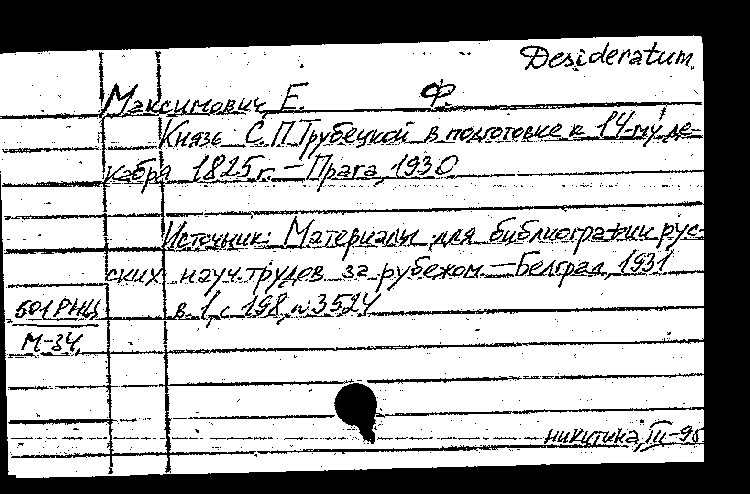 Desideratum.
Максимович, Е. Ф.
Князь С.П.Трубецкой в подготовке к 14-му де-
кабря 1825г. – Прага, 1930
Источник: Материалы для библиографии рус-
ских науч.трудов за рубежом. – Белград, 1931
в.1, с 198, № 3524
601 РНЦ
М-34.
никитина, III-95